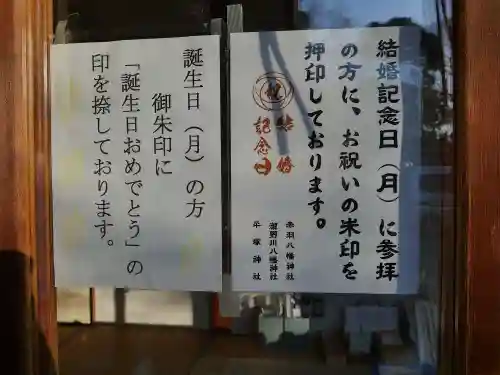 結婚記念日（月）に参拝
の方に、お祝いの米印を
押印しております。
祝
結婚
記念日
赤羽八幡神社
瀧野川八幡神社
平塚神社
誕生日（月）の方
御朱印に
「誕生日おめでとう」の
印を捺しております。